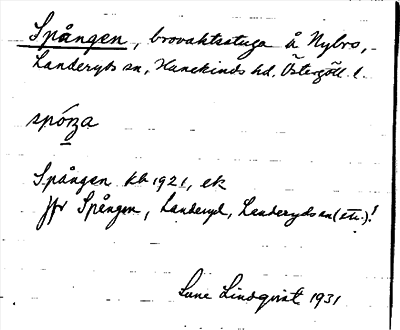 Spången, brovaktsstuga å Nybro,
Landeryds sn, Hanekinds hd, Östergötl. l.
Spången kb 1921, ek
jfr Spången, Landeryd, Landeryds sn (etc.)!
Sune Lindqvist 1931